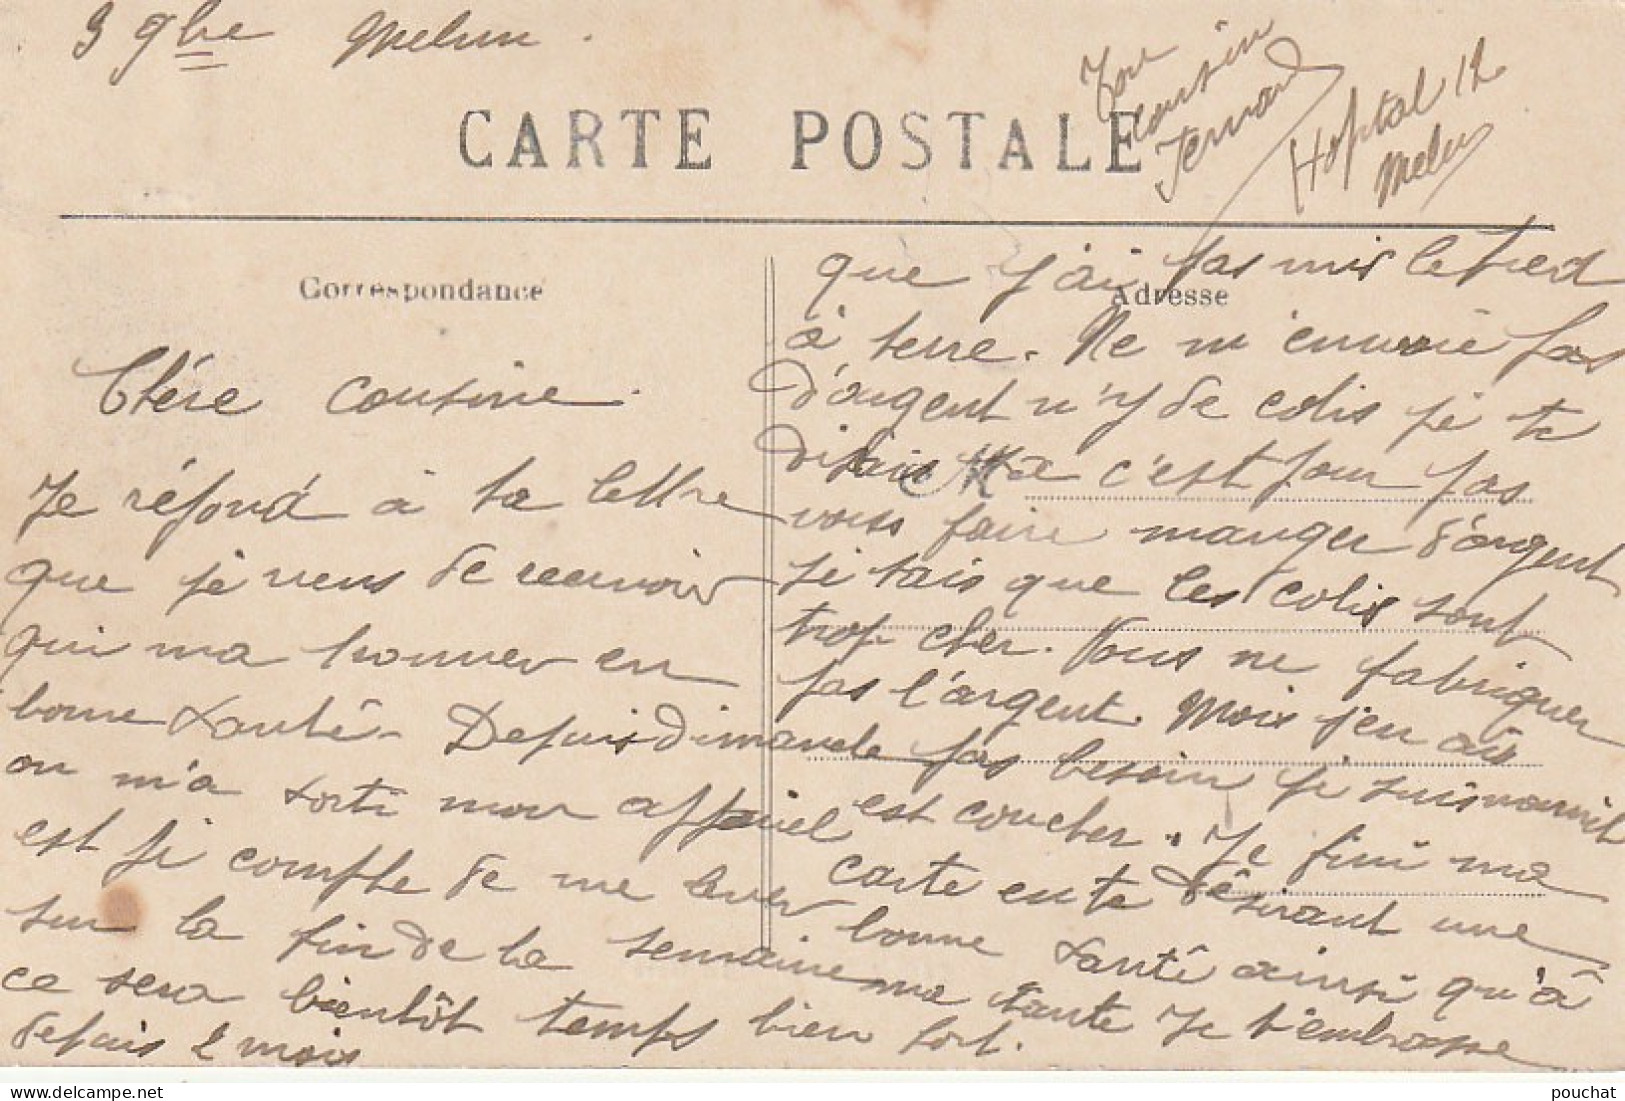 9 9bre Melun.
CARTE POSTALE
Correspondance
Chére cousine.
Je répond à ta lettre
que je viens de recevoir
qui ma trouver en
bonne santé. Depuis dimanche
on m'a sorti mon appareil
est je compte de me lever
sur la fin de la semaine
ce sera bientôt temps
depuis 2 mois
Adresse
que j'ai pas mis le pied
à terre. Ne m'envoie pas
d'argent n'y de colis je te
disais c'est pour pas
vous faire manger d'argent
je sais que les colis sont
trop cher. Vous ne fabriquer
pas l'argent. Mois j'en ais
pas besoin je suis nourrit
est coucher. Je fini ma
carte en te désirant une
bonne santé ainsi qu'à
ma tante Je t'embrasse
bien fort.
Ton
cousin
Fernand
Hopital 12
Melun
pouchat